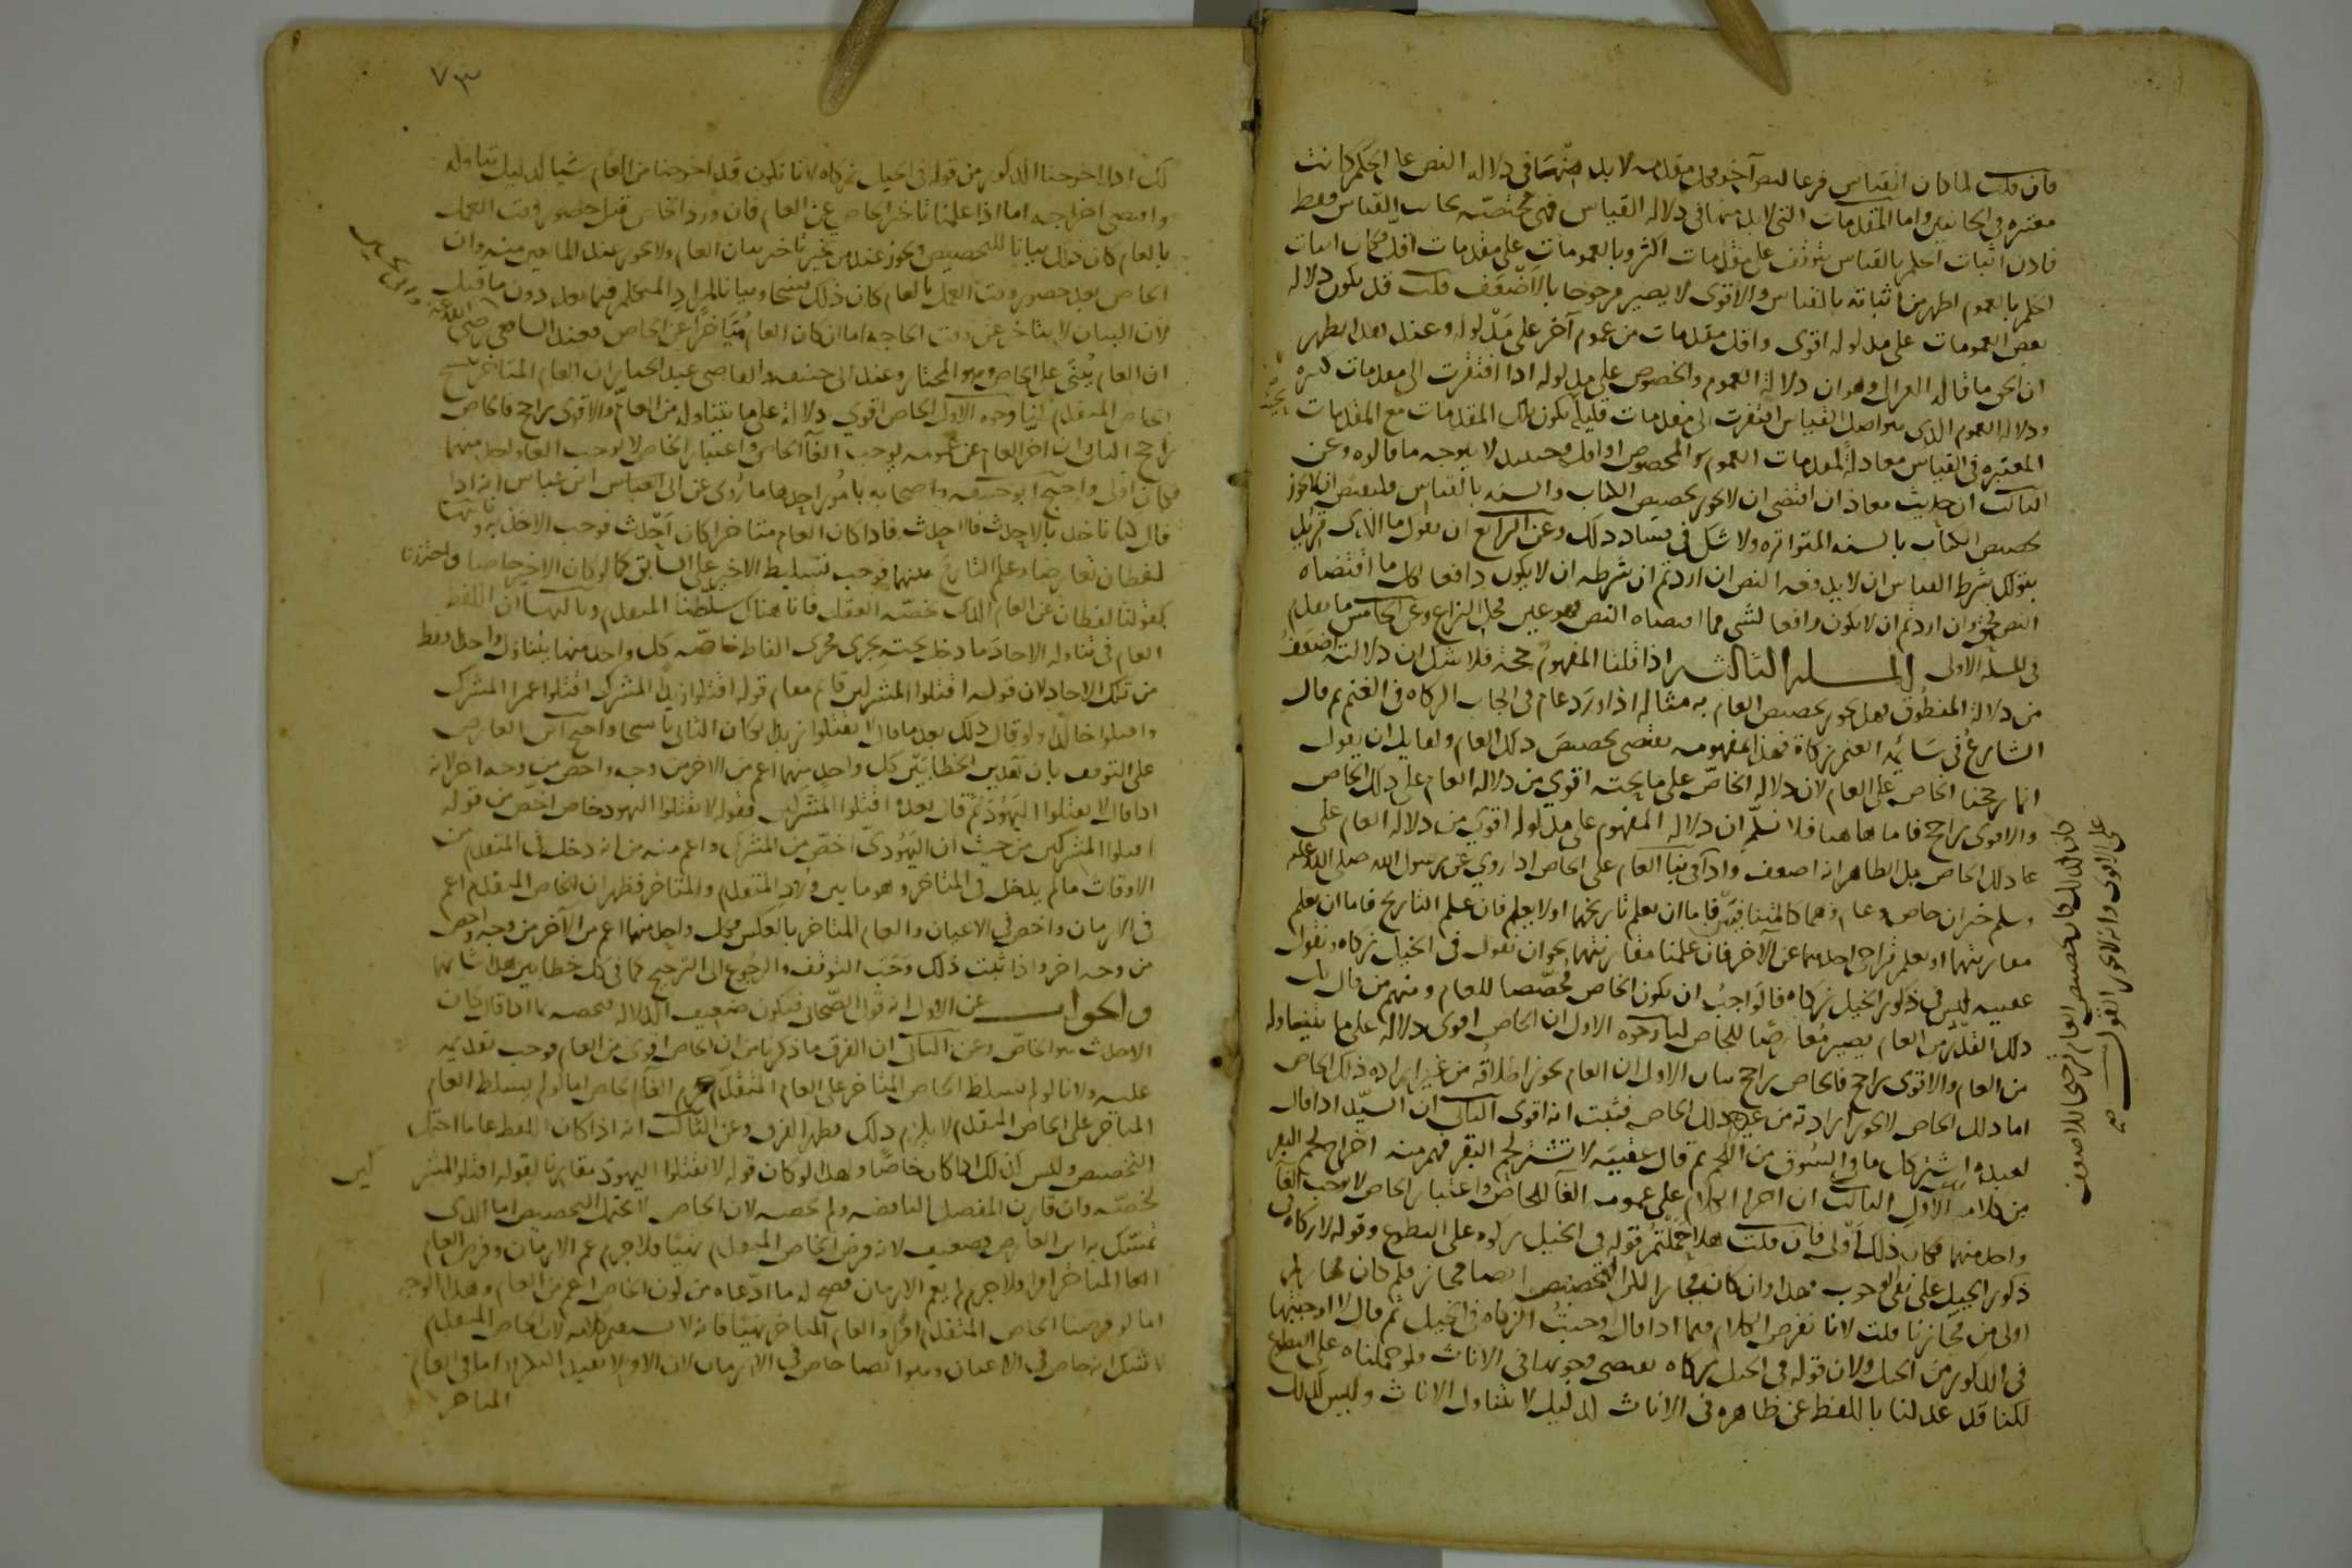 فان قلت لما كان القياس فرعا لنص آخر فكل مقدمه لابد منها في دلاله النص على الحكم كانت
معتبره في الجانبين واما المقدمات التي لابد منها في دلاله القياس فهي مختصة بجانب القياس فقط
فاذن اثبات الحكم بالقياس يتوقف على مقدمات اكثر وبالعمومات على مقدمات اقل فكان اثبات
الحكم بالعموم اظهر من اثباته بالقياس والاقوى لا يصير مرجوحا بالاضعف قلت قد يكون دلاله
بعض العمومات على مدلوله اقوى واقل مقدمات من عموم آخر على مدلوله وعند هذا يظهر
ان الحق ما قاله الغزالي وهو ان دلالة العموم والخصوص على مدلوله اذا افتقرت الى مقدمات كثيره
ودلاله العموم الذي هو اصل القياس افتقرت الى مقدمات قليلة بكون تلك المقدمات مع المقدمات
المعتبره في القياس معادلة لمقدمات العموم المخصوص او اقل وحينئذ لا يتوجه ما قالوه وعن
الثالث ان حديث معاذ ان اقتضى ان لا يجوز تخصيص الكتاب والسنه بالقياس فليقتض ان لا يجوز
تخصيص الكتاب بالسنه المتواتره ولا شك في فساد ذلك وعن الرابع ان نقول ما الذي تريد
بقولك شرط القياس ان لا يدفعه النص ان اردتم ان شرطه ان لا يكون دافعا لكل ما اقتضاه
النص فحق وان اردتم ان لا يكون دافعا لشي مما اقتضاه النص فهو عين محل النزاع وعن الخامس ما تقدم
في المسلة الاولى المسلة الثالثة اذا قلنا المفهوم حجة فلا شك ان دلالته اضعف
من دلالة المنطوق فهل يجوز تخصيص العام به مثاله اذا ورد عام في ايجاب الزكاه في الغنم ثم قال
الشارع في سائمه الغنم زكاة فهذا المفهومه يقتضي تخصيص ذلك العام ولقايل ان يقول
انما رجحنا الخاص على العام لان دلاله الخاص على ما تحته اقوى من دلاله العام على ذلك الخاص
والاقوى راجح فاما هاهنا فلا نسلم ان دلاله المفهوم على مدلوله اقوى من دلاله العام على
ذلك الخاص بل الظاهر انه اضعف واذا في بنا العام على الخاص اذا روي عن رسول الله صلى الله عليه
وسلم خبران خاص وعام وهما كالمتنافيين فاما ان يعلم تاريخهما او لا يعلم فان علم التاريخ فاما ان يعلم
مقارنتهما او يعلم تراخى احدهما عن الآخر فان علمنا مقارنتهما نحو ان يقول في الخيل زكاه ونقول
عقيبه ليس في ذكور الخيل زكاه فالواجب ان يكون الخاص مخصصا للعام ومنهم من قال بل
ذلك القدر من العام يصير معارضا للخاص لنا وجوه الاول ان الخاص اقوى دلالة على ما يتناوله
من العام والاقوى راجح فالخاص راجح بيان الاول ان العام يجوز اطلاقه من غير اراده ذلك الخاص
اما ذلك الخاص لا يجوز ايراده من غير ذلك الخاص فثبت انه اقوى الثاني ان السيد اذا قال
لعبده اشتر كل ما في السوق من اللحم ثم قال عقيبه لا تشتر لحم البقر فهم منه اخراج لحم البقر
من كلامه الاول الثالث ان اجراء الكلام على عمومه الغآ للخاص واعتبار الخاص لا يوجب الغآ
واحد منهما فكان ذلك اولى فان قلت هلا حملتم قوله في الخيل زكوه على التطوع وقوله لا زكاه في
ذكور الخيل على نفي الوجوب وهذا وان كان مجازا لكن التخصيص ايضا مجاز فلم كان مجازكم
اولى من مجازنا قلت لانا نفرض الكلام فيما اذا قال اوجبت الزكاه في الخيل ثم قال لا اوجبتها
في الذكور من الخيل ولان قوله في الخيل زكاه يقتضي وجوبها في الاناث فلو حملناه على التطوع
لكنا قد عدلنا باللفظ عن ظاهره في الاناث لدليل لا يتناول الاناث وليس كذلك
٧٣
لك اذا اخرجنا الذكور من قوله في الخيل زكاه لانا نكون قد اخرجنا من العام شيا لدليل تناوله
واقتضى اخراجه اما اذا علمنا تاخر الخاص عن العام فان ورد الخاص قبل حضور وقت العمل
بالعام كان ذلك بيانا للتخصيص ويجوز عند من يجيز تاخر بيان العام ولا يجوز عند المانعين منه وان
الخاص بعد حضور وقت العمل بالعام كان ذلك نسخا وبيانا لمراد المتكلم فيما بعد دون ما قبل
لان البيان لا يتاخر عن وقت الحاجه اما ان كان العام متاخرا عن الخاص فعند الشافعي رضي الله عنه
ان العام يبنى على الخاص وهو المختار وعند ابي حنيفه والقاضي عبد الجبار ان العام المتاخر ينسخ
الخاص المتقدم لنا وجوه الاول الخاص اقوى دلالة على ما يتناوله من العام والاقوى راجح فالخاص
راجح الثاني ان اجرا العام عن عمومه يوجب الغآ الخاص واعتبار الخاص لا يوجب الغا واحد منهما
فكان اولى واحتج ابو حنيفه واصحابه بامور احدها ما روى عن ابن عباس انه
قال كنا ناخذ بالاحدث فالاحدث فاذا كان العام متاخرا كان احدث فوجب الاخذ به وثانيها
لفظان تعارضا وعلم التاريخ بينهما فوجب تسليط الاخير على السابق كما لو كان الاخير خاصا واحترزنا
بقولنا لفظان عن العام الذي خصه العقل فانا هناك سلطنا المتقدم وثالثها ان اللفظ
العام في تناوله الاحاد ما دخل تحته يجرى مجرى الفاظ خاصه كل واحد منها يتناول واحدا فقط
من تلك الاحاد لان قوله اقتلوا المشركين قام مقام قوله اقتلوا زيدا المشرك اقتلوا عمرا المشرك
واقتلوا خالدا ولو قال ذلك بعد ما قال لا تقتلوا زيدا لكان الثاني ناسخا واحتج ابن العارض
على التوقف بان هذين الخطابين كل واحد منهما اعم من الاخر من وجه واخص من وجه اخر لانه
اذا قال لا تقتلوا اليهود ثم قال بعده اقتلوا المشركين فقوله لا تقتلوا اليهود خاص اخص من قوله
اقتلوا المشركين من حيث ان اليهودى اخص من المشرك واعم منه من انه دخل في المتقدم من
الاوقات ما لم يدخل في المتاخر وهو ما بين ورود المتقدم والمتاخر فظهر ان الخاص المتقدم اعم
في الازمان واخص في الاعيان والعام المتاخر بالعكس فكل واحد منهما اعم من الآخر من وجه واخص
من وجه اخر واذا ثبت ذلك وجب التوقف والرجوع الى الترجيح كما في كل خطابين هذا شانهما
والجواب عن الاول انه قول الصحابي فيكون ضعيف الدلاله فنخصه بما اذا كان
الاحدث هو الخاص وعن الثاني ان الفرق ما ذكرنا من ان الخاص اقوى من العام فوجب تقديمه
عليه ولانا لو لم نسلط الخاص المتاخر على العام المتقدم لزم الغآ الخاص اما لو لم يسلط العام
المتاخر على الخاص المتقدم لا يلزم ذلك فظهر الفرق وعن الثالث انه اذا كان اللفظ عاما احتمل
التخصيص وليس كذلك اذا كان خاصا ولهذا لو كان قوله لا تقتلوا اليهود مقارنا لقوله اقتلوا المشر
كين
لخصه وان قارن المفصل لناقضه ولم يخصه لان الخاص لا يحتمل التخصيص اما الذي
تمسك به ابن العارض فضعيف لانه فرض الخاص المتقدم نهيا فلا جرم عم الازمان وفرض العام
المتاخر امرا فلا جرم لم يعم الازمان فصح له ما ادعاه من كون الخاص اعم من العام من هذا الوجه
اما لو فرضنا الخاص المتقدم امرا والعام المتاخر نهيا فانه لا يستقيم كلامه لان الخاص المتقدم
لا شك انه خاص في الاعيان وهو ايضا خاص في الازمان لان الامر لا يفيد التكرار اما في العام
المتاخر